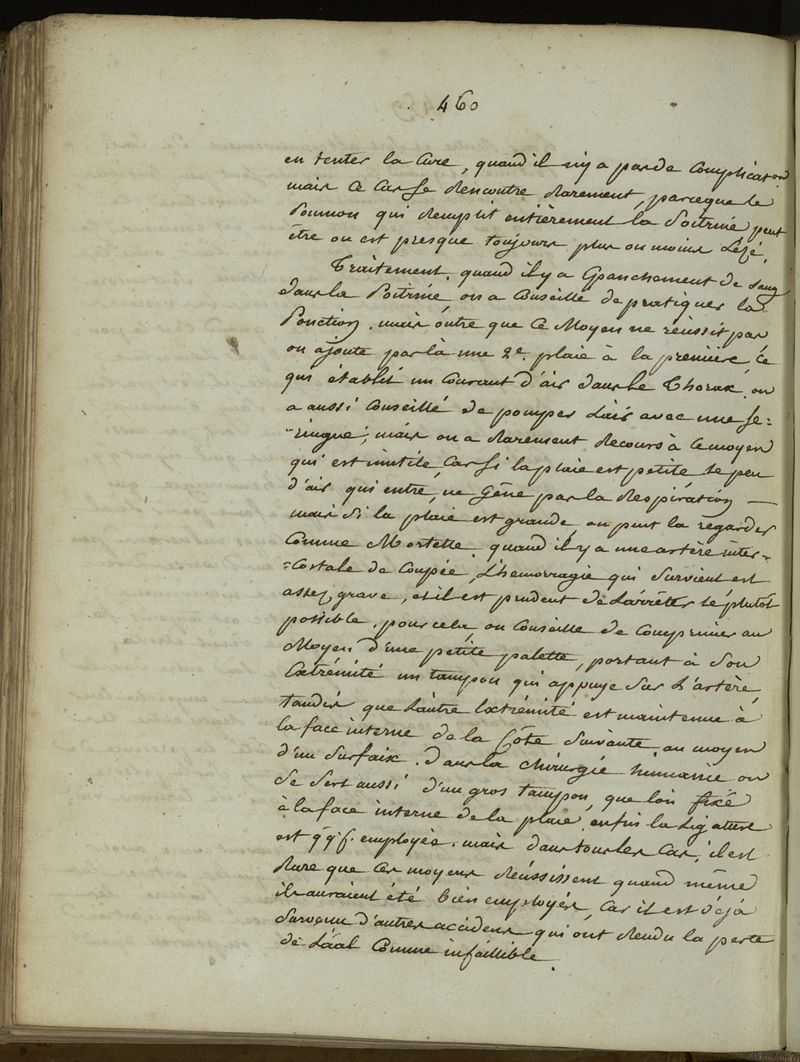 460
en tenter la Cure, quand il n'y a pas de Complication
mais Ce Cas se Rencontre Rarement, parceque le
Poumon qui Remplit entièrement la Poitrine peut
être ou est presque toujours plus ou moins Lézé.
Traitement. quand il y a Epanchement de Sang
dans la Poitrine on a Conseillé de pratiquer la
Ponction. mais outre que Ce Moyen ne réussit pas
on ajoute par là une 2e. plaie à la première, Ce
qui établit un Courant d'air dans le Thorax. on
a aussi Conseillé de pomper L'air avec une Se=
=ringue; mais on a Rarement Recours à Ce moyen
qui est inutile, Car Si la plaie est petite le peu
d'air qui entre, ne Gêne pas la Respiration —
mais Si la plaie est grande, on peut la regarder
Comme Mortelle. quand il y a une artère inter-
=Costale de Coupée, L'hemorragie qui Survient est
assez grave, et il est prudent de L'arrêter le plutôt
possible. pour cela, on Conseille de Comprimer au
Moyen d'une petite palette, portant à Son
Extrémité un tampon qui appuye Sur L'artère,
tandis que L'autre Extrémité est maintenue à
la face interne de la Côte Suivante au moyen
d'un Surfaix. Dans la Chirurgie humaine on
Se Sert aussi d'un gros tampon, que l'on fixé
à la face interne de la plaie. enfin la Ligature
est qqf. employée. mais dans tous les Cas, il est
Rare que Ces moyens Réussissent quand même
ils auraient été bien employés, Car il est déjà
Survenu d'autres accidens qui ont Rendu la perte
de L'aal Comme infaillible.